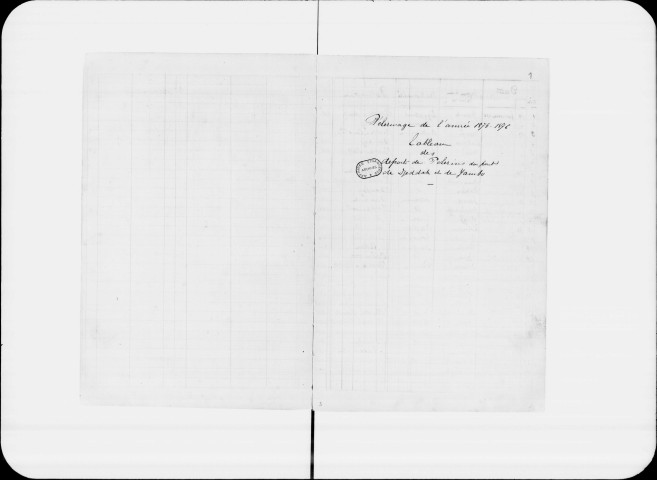 1
Pélerinage de l'année 1875-1876
Tableau
des
départs de Pélerins des ports
de Djeddah et de Yambo